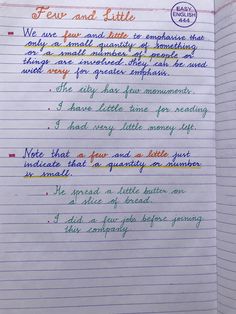 Few and Little
EASY
ENGLISH
444
We use few and little to emphasise that
only a small quantity of something
or a small number of people or
things are involved. They can be used
with very for greater emphasis.
. The city has few monuments.
. I have little time for reading
. I had very little money left.
Note that a few and a little just
indicate that a quantity or number
is small.
. He spread a little butter on
a slice of bread.
. I did a few jobs before joining
this company